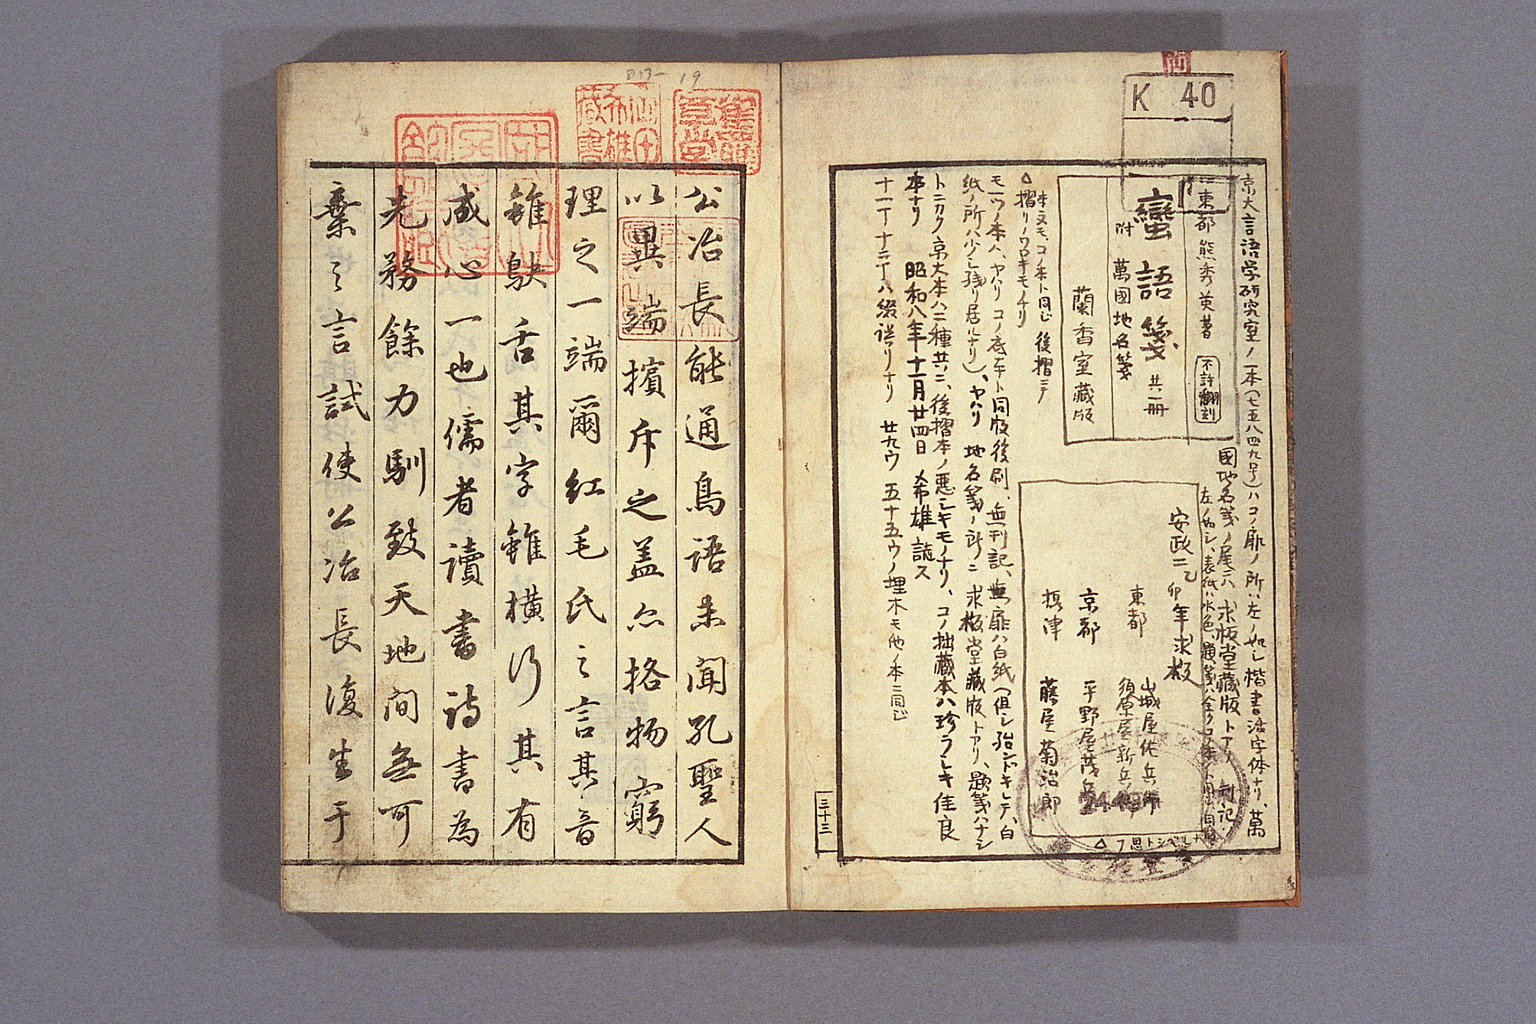 K 40
京大言語学研究室ノ一本(七五八四九号)ハコノ扉ノ所ハ左ノ如シ楷書活字体ナリ、萬
國地名箋ノ尾ニハ求板堂藏版トアリ
左ノ如シ、表紙ハ水色、題箋ハ全ク
東都 熊秀英著 不許翻刻
蠻語箋 共二冊
附 萬國地名箋
蘭香室藏版
安政二乙卯年求板
東都 山城屋佐兵衛
須原屋新兵衛
京都 平野屋茂兵衛
摂津 藤屋菊治郎
本文モ、コノ本ト同ジ 後摺ニテ
△摺リノワロキモノナリ
モ一ツノ本ハ、ヤハリコノ底本ト同版後刷、無刊記、無扉ハ白紙(但シ殆ンドキレテ、白
紙ノ所ハ少シ残リ居ルナリ)、ヤハリ 地名箋ノ所ニ 求板堂藏版トアリ、題箋ハナシ
トニカク京大本ハ二種共ニ、後摺本ノ悪シキモノナリ、コノ拙藏本ハ珍ラシキ佳良
本ナリ 昭和八年十一月廿四日 希雄誌ス
十一丁十二丁ハ綴誤リナリ 廿九ウ 五十五ウノ埋木モ他ノ本ニ同ジ
三十三
2449
公冶長能通鳥語未聞孔聖人
以異端擯斥之盖亦格物窮
理之一端爾紅毛氏之言其音
雖鴃舌其字雖横行其有
咸心一也儒者讀書詩書為
先務餘力馴致天地間無可
棄之言試使公冶長復生于